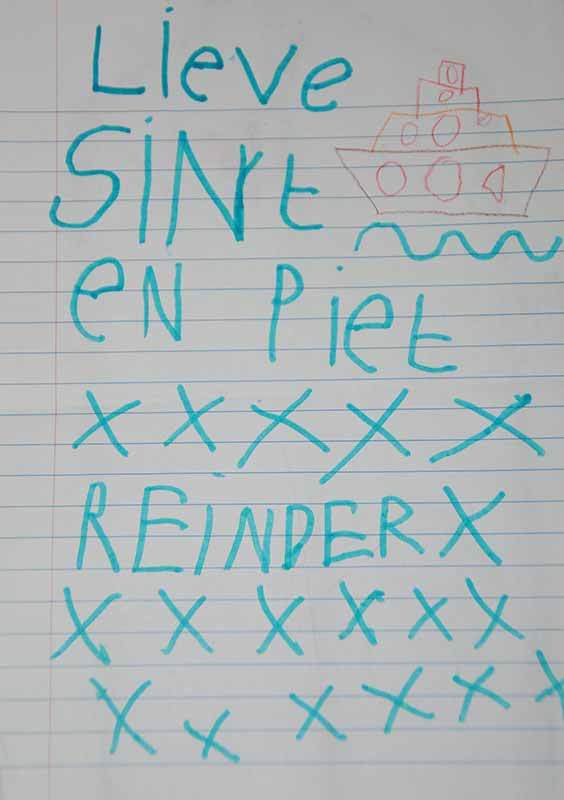 Lieve
SINt
eN Piet
XXXXX
REINDER X
XXXXXX
XXXXXX